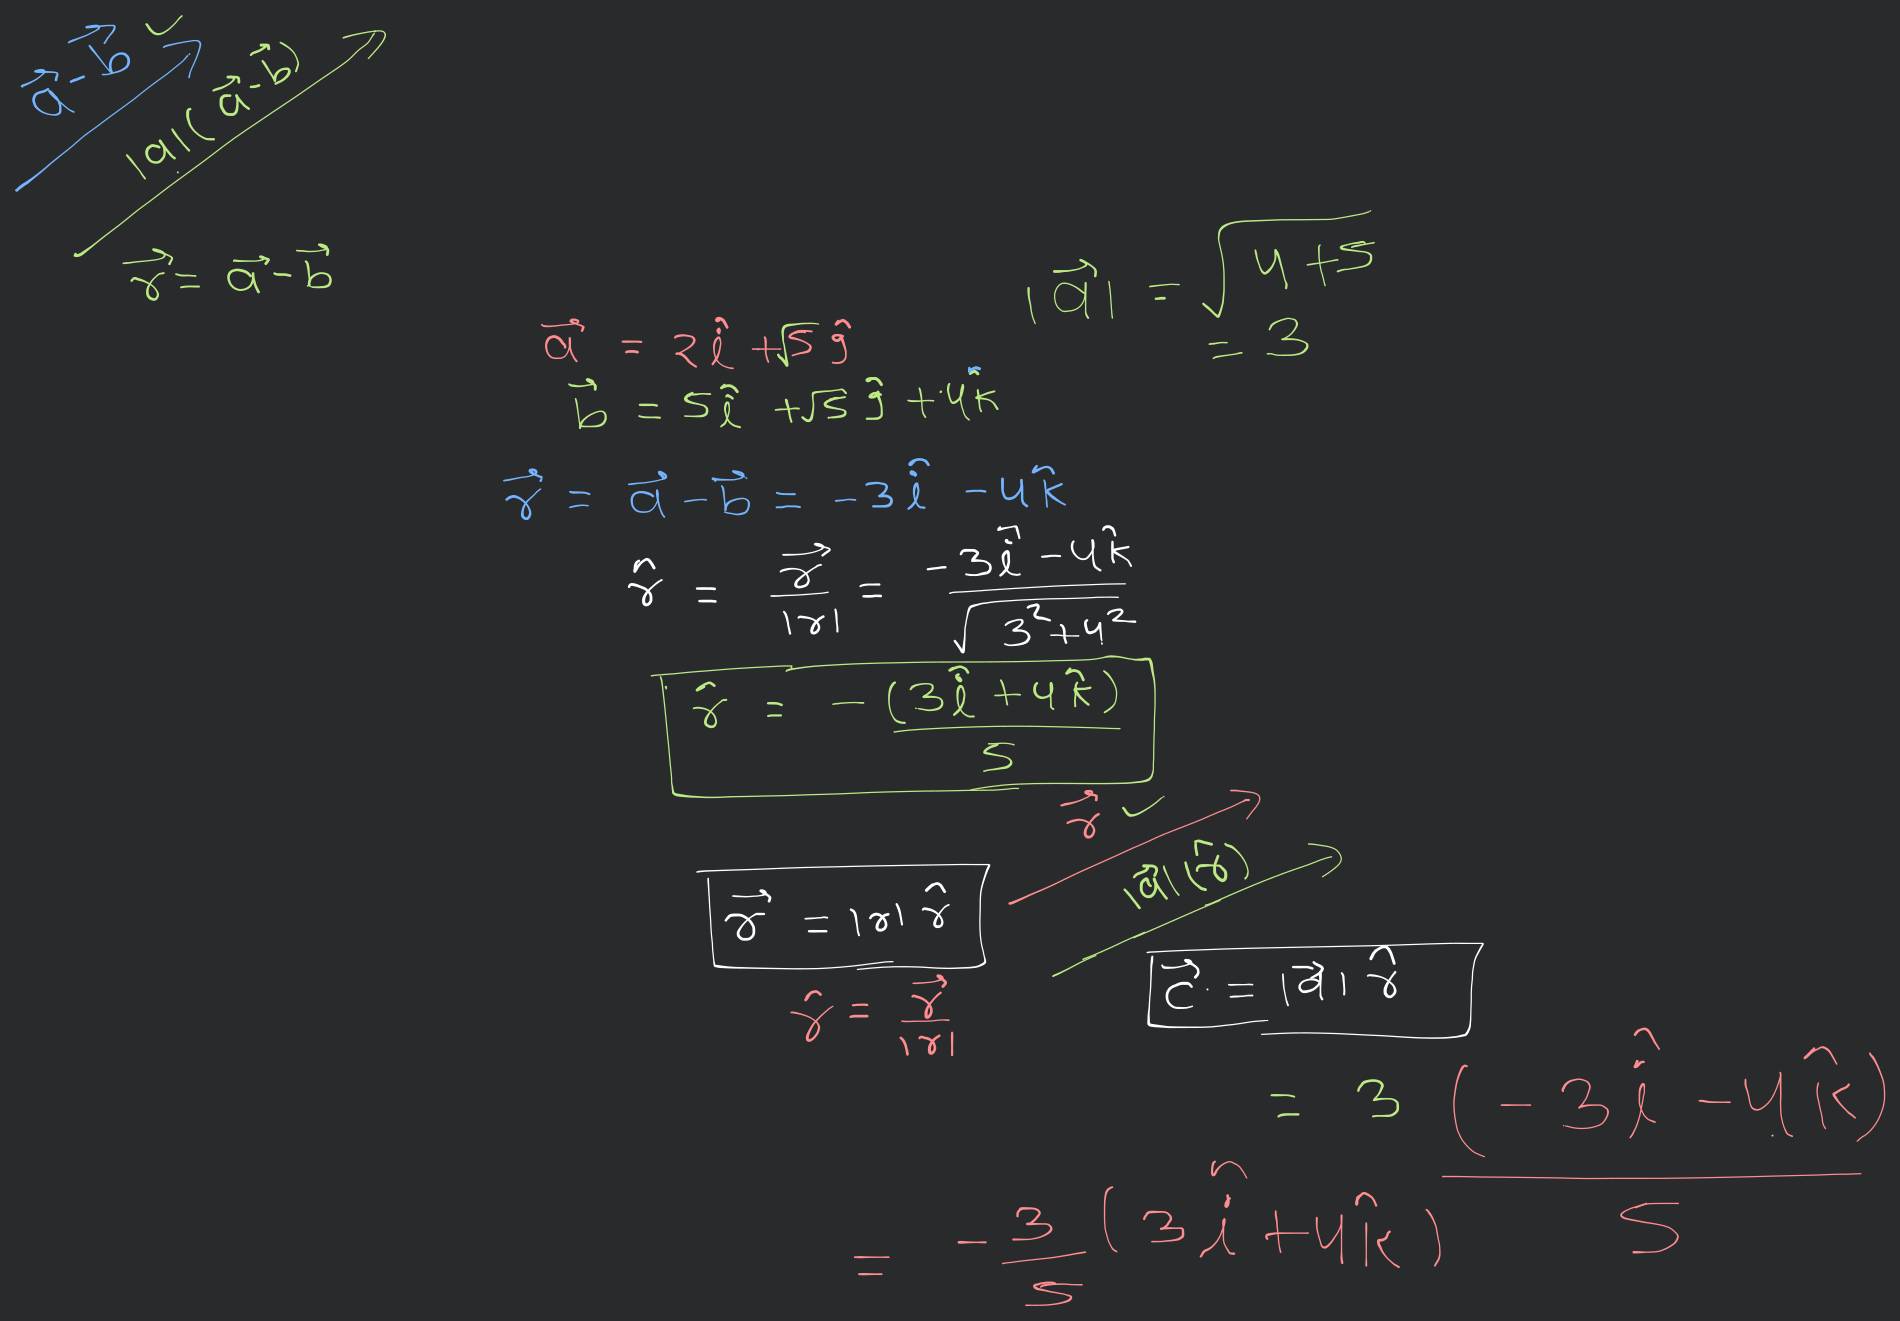 a⃗ - b⃗ ✓
|a|(a⃗ - b⃗)
r⃗ = a⃗ - b⃗
|a⃗| = √(4+5)
= 3
a⃗ = 2î + √5 ĵ
b⃗ = 5î + √5 ĵ + 4k̂
r⃗ = a⃗ - b⃗ = -3î - 4k̂
r̂ = r⃗/|r| = (-3î - 4k̂)/√(3² + 4²)
r̂ = -(3î + 4k̂)/5
r⃗ ✓
|a⃗|(r̂)
r⃗ = |r| r̂
r̂ = r⃗/|r|
c⃗ = |a⃗| r̂
= 3 (-3î - 4k̂)/5
= -3/5 (3î + 4k̂)